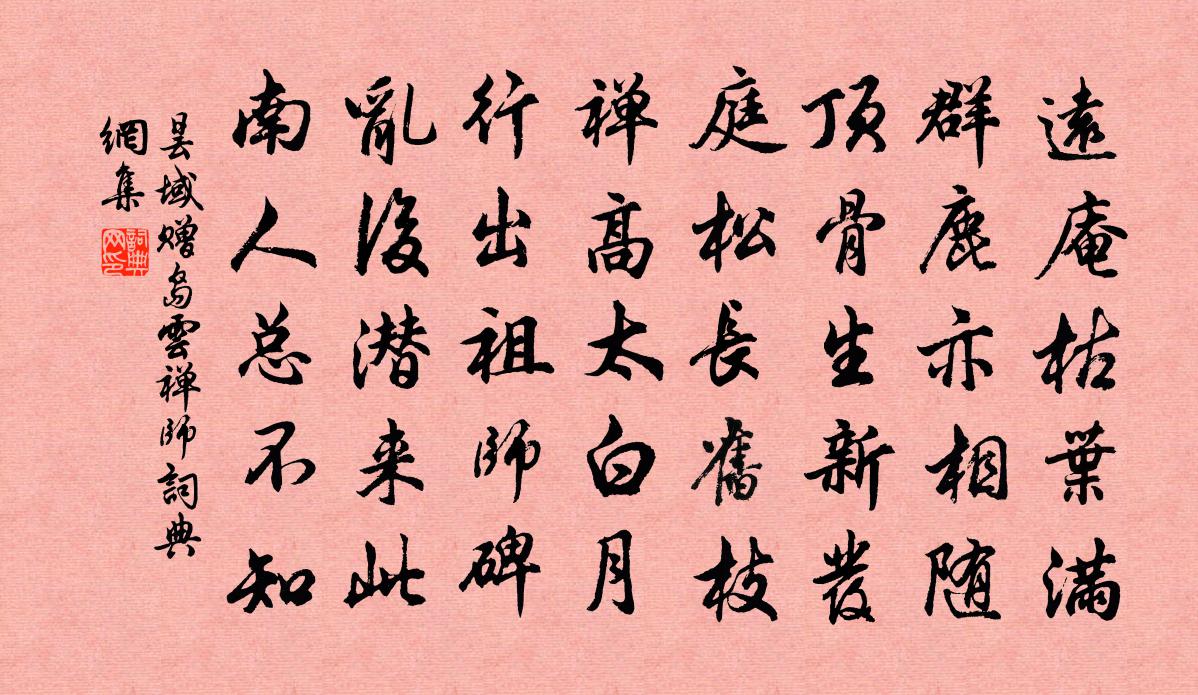 遠庵枯葉满
群鹿亦相随
頂骨生新發
庭松長舊枝
禅高太白月
行出祖師碑
亂後潜来此
南人总不知
昙域赠島雲禅師詞典
網集
詞典网印